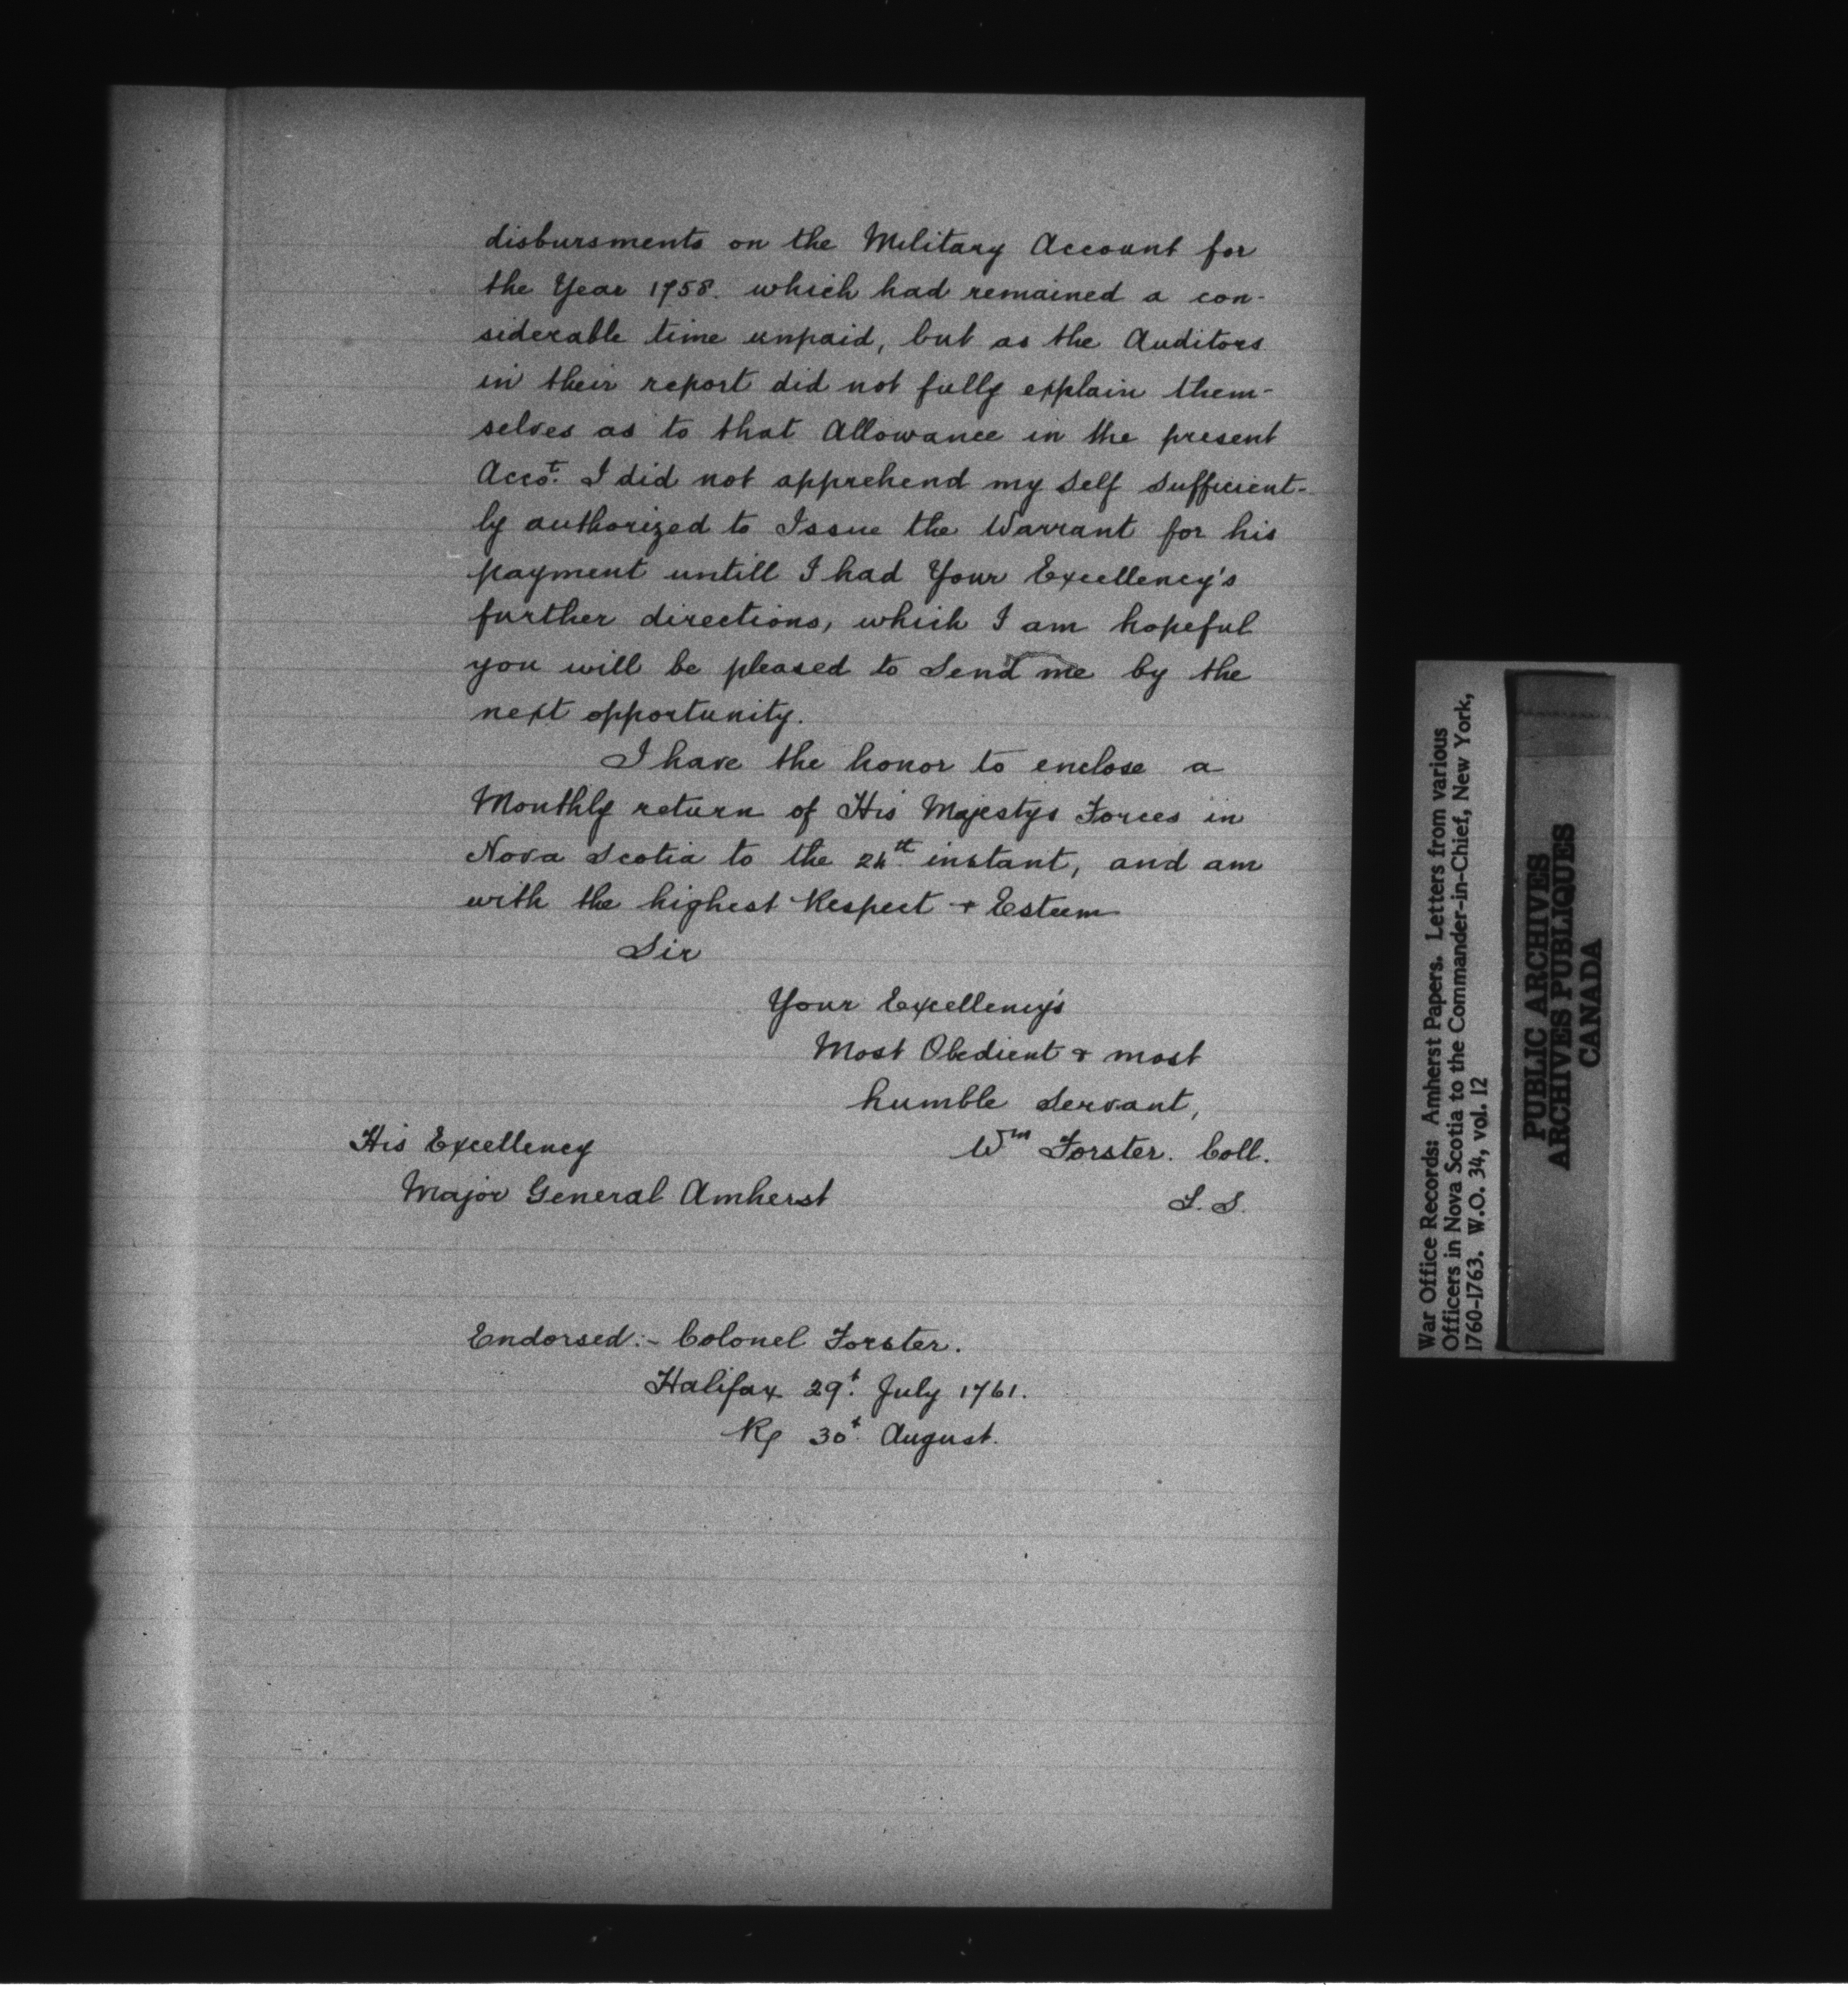 disbursments on the Military Account for
the Year 1758. which had remained a con-
siderable time unpaid, but as the Auditors
in their report did not fully explain them-
selves as to that Allowance in the present
Acco.t I did not apprehend my self sufficient-
ly authorized to Issue the Warrant for his
payment untill I had Your Excellency's
further directions, which I am hopeful
you will be pleased to Send me by the
next opportunity.
I have the honor to enclose a
Monthly return of His Majestys Forces in
Nova Scotia to the 24th instant, and am
with the highest Respect + Esteem
Sir
Your Excellency's
Most Obedient & most
humble Servant,
Wm Forster. Coll.
His Excellency
Major General Amherst
S. S.
Endorsed:- Colonel Forster.
Halifax 29.t July 1761.
30.t August.
War Office Records: Amherst Papers. Letters from various
Officers in Nova Scotia to the Commander-in-Chief, New York,
1760-1763. W.O. 34, vol. 12
PUBLIC ARCHIVES
ARCHIVES PUBLIQUES
CANADA